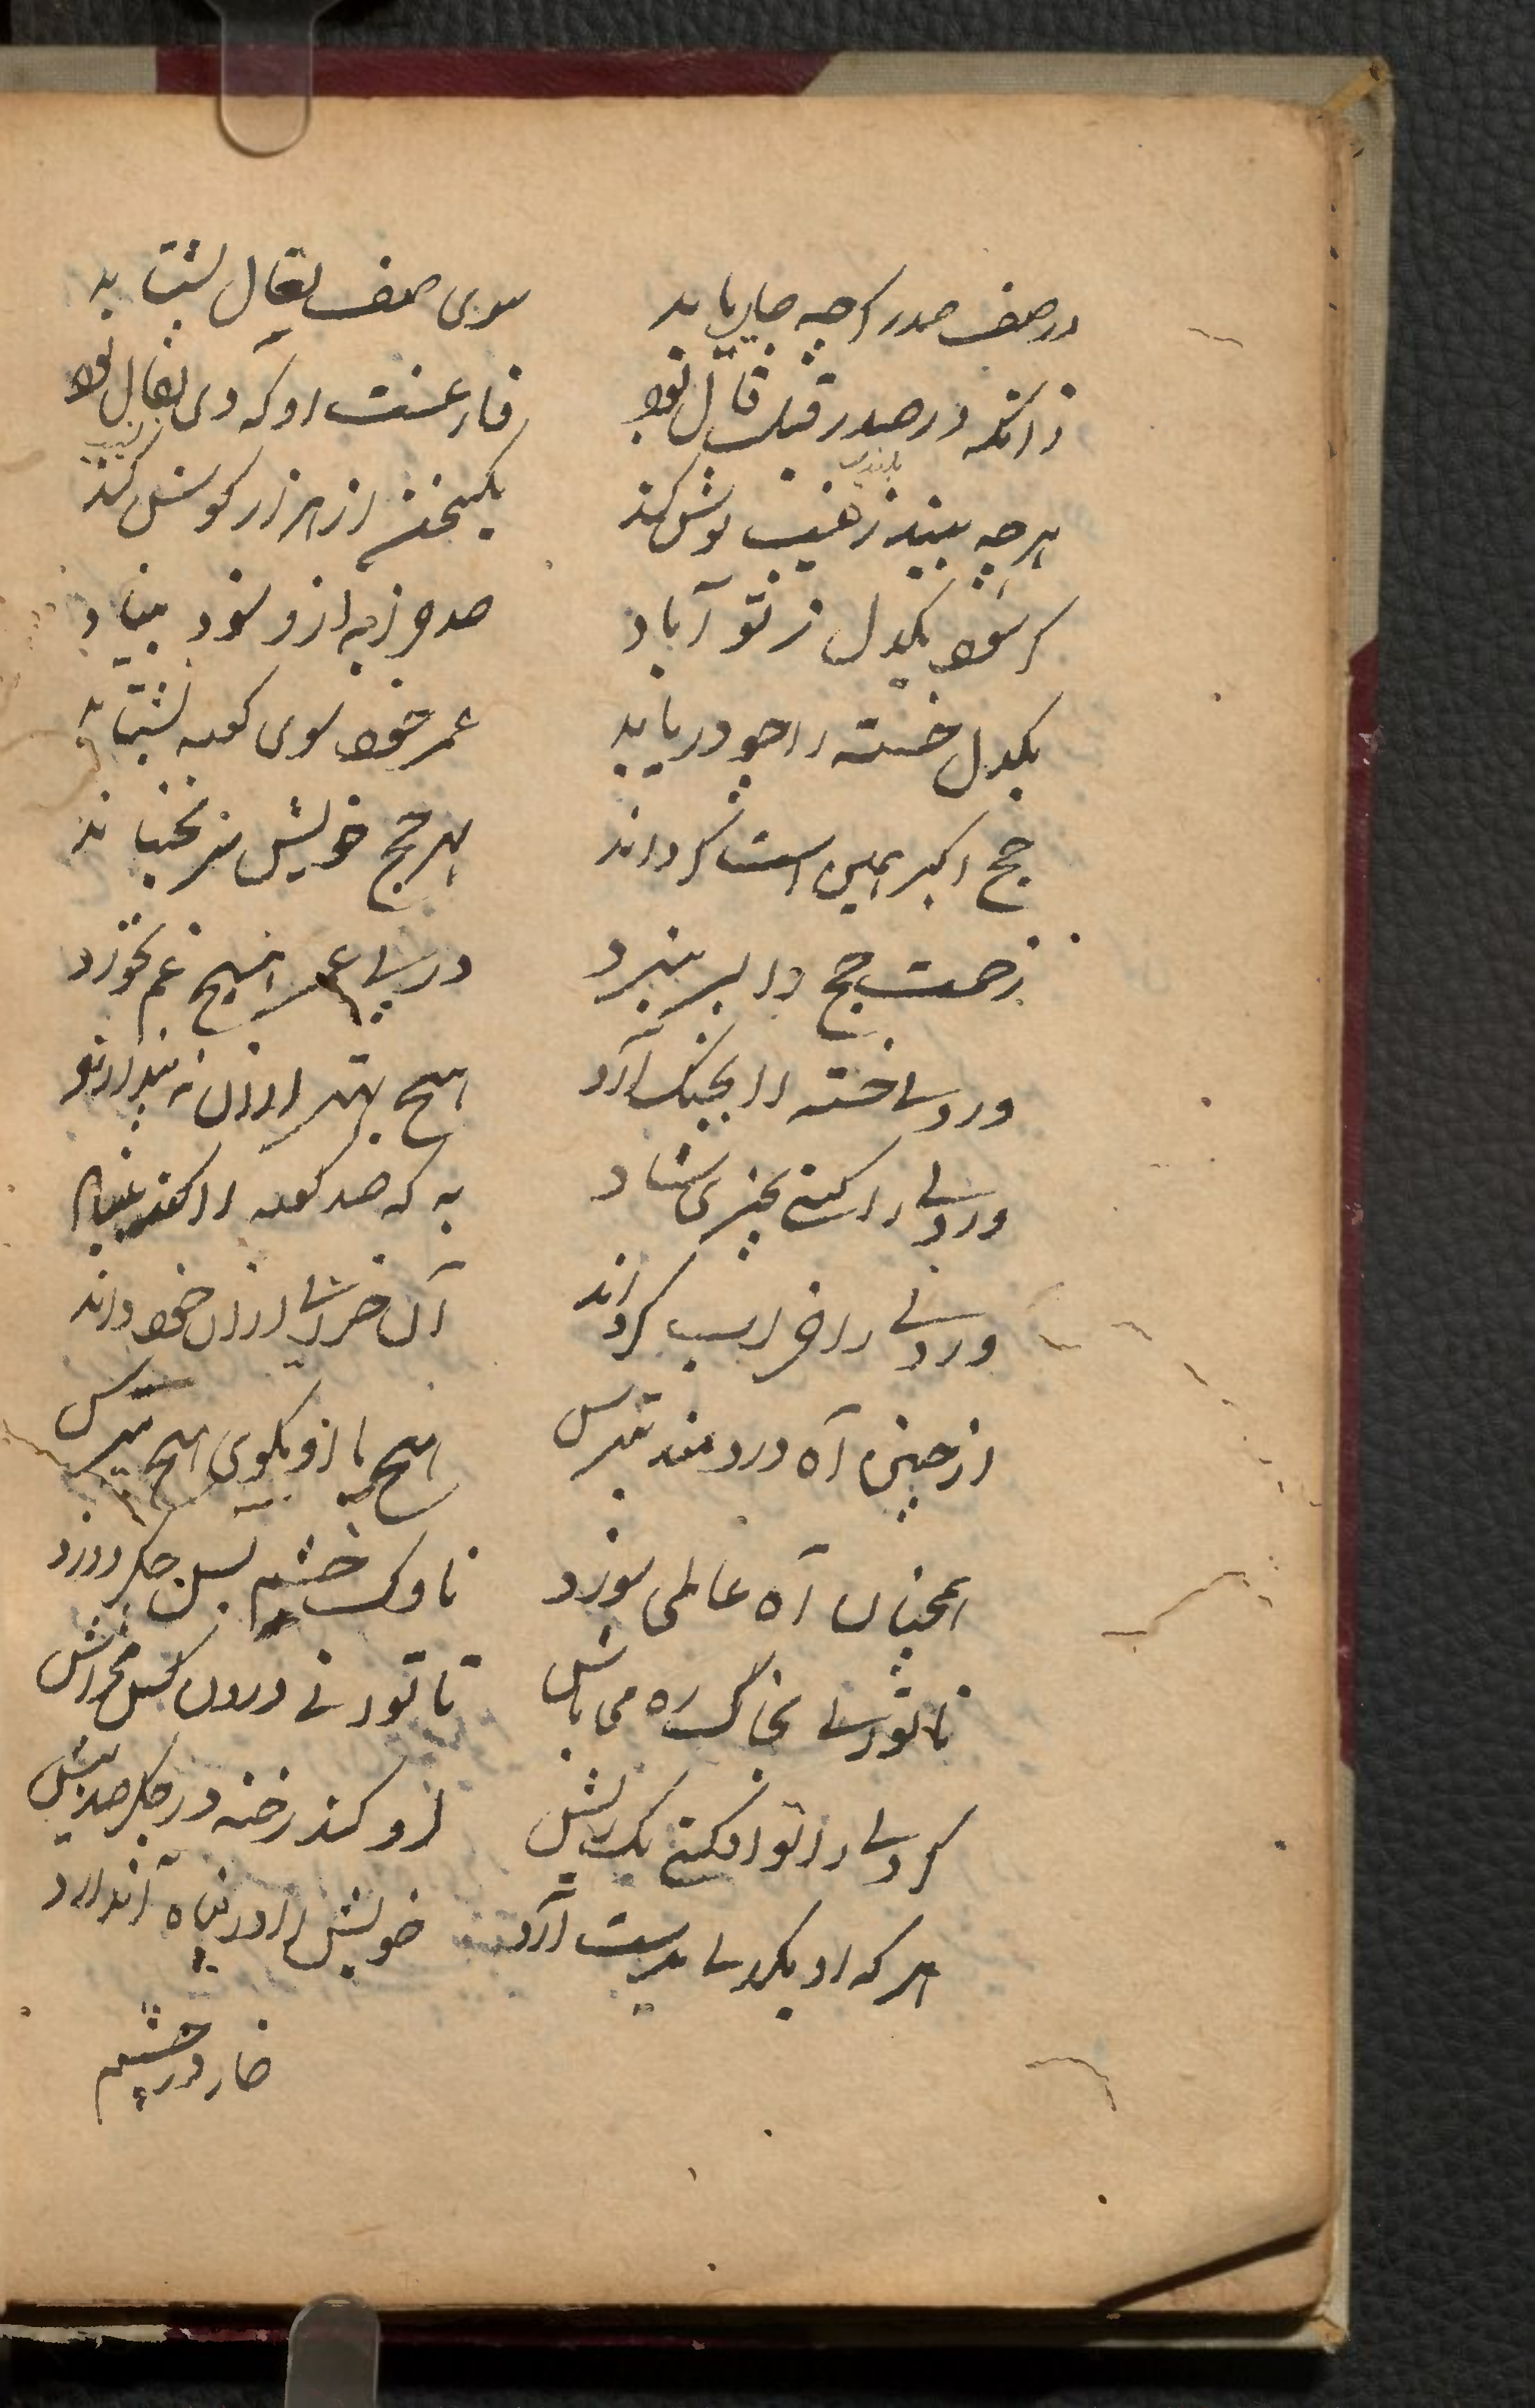 در صف صدر اگر چه جای یابد سوی صف نعال بشتابد
زانکه در صدر قیل و قال بود فارغست او که در نعال بود
هرچه بیند ز غیب پوش کند یک سخن از هزار گوش کند
گر شود یکدل ز تو آباد صد و زبه از و شود بنیاد
یکدل خسته را چو دریابد عمر خود سوی کعبه بشتابد
حج اکبر همین است گر داند بهر حج خویش سر نجنباند
زحمت حج را بسر نبرد در پی عمره هیچ غم نخورد
ور دلی خسته را بچنگ آرد هیچ بهتر از آن نپندارد
ور دلی را کنی بچیزی شاد به که صد کعبه را کنی بنیاد
ور دلی را خراب گرداند آن خرابی از آن خود داند
از چنین آه دردمند بترس هیچ یا ازو بگوی هیچ مترس
همچنان آه عالمی سوزد ناوک خشم بس جگر دوزد
تا توانی بخاک ره می باش تا توانی درون کس مخراش
گر دلی را تو افکنی یک ریش او کند رخنه در جگر صد بیش
هر که او یکدلی بدست آرد خویش را در پناه آن دارد
خار در چشم